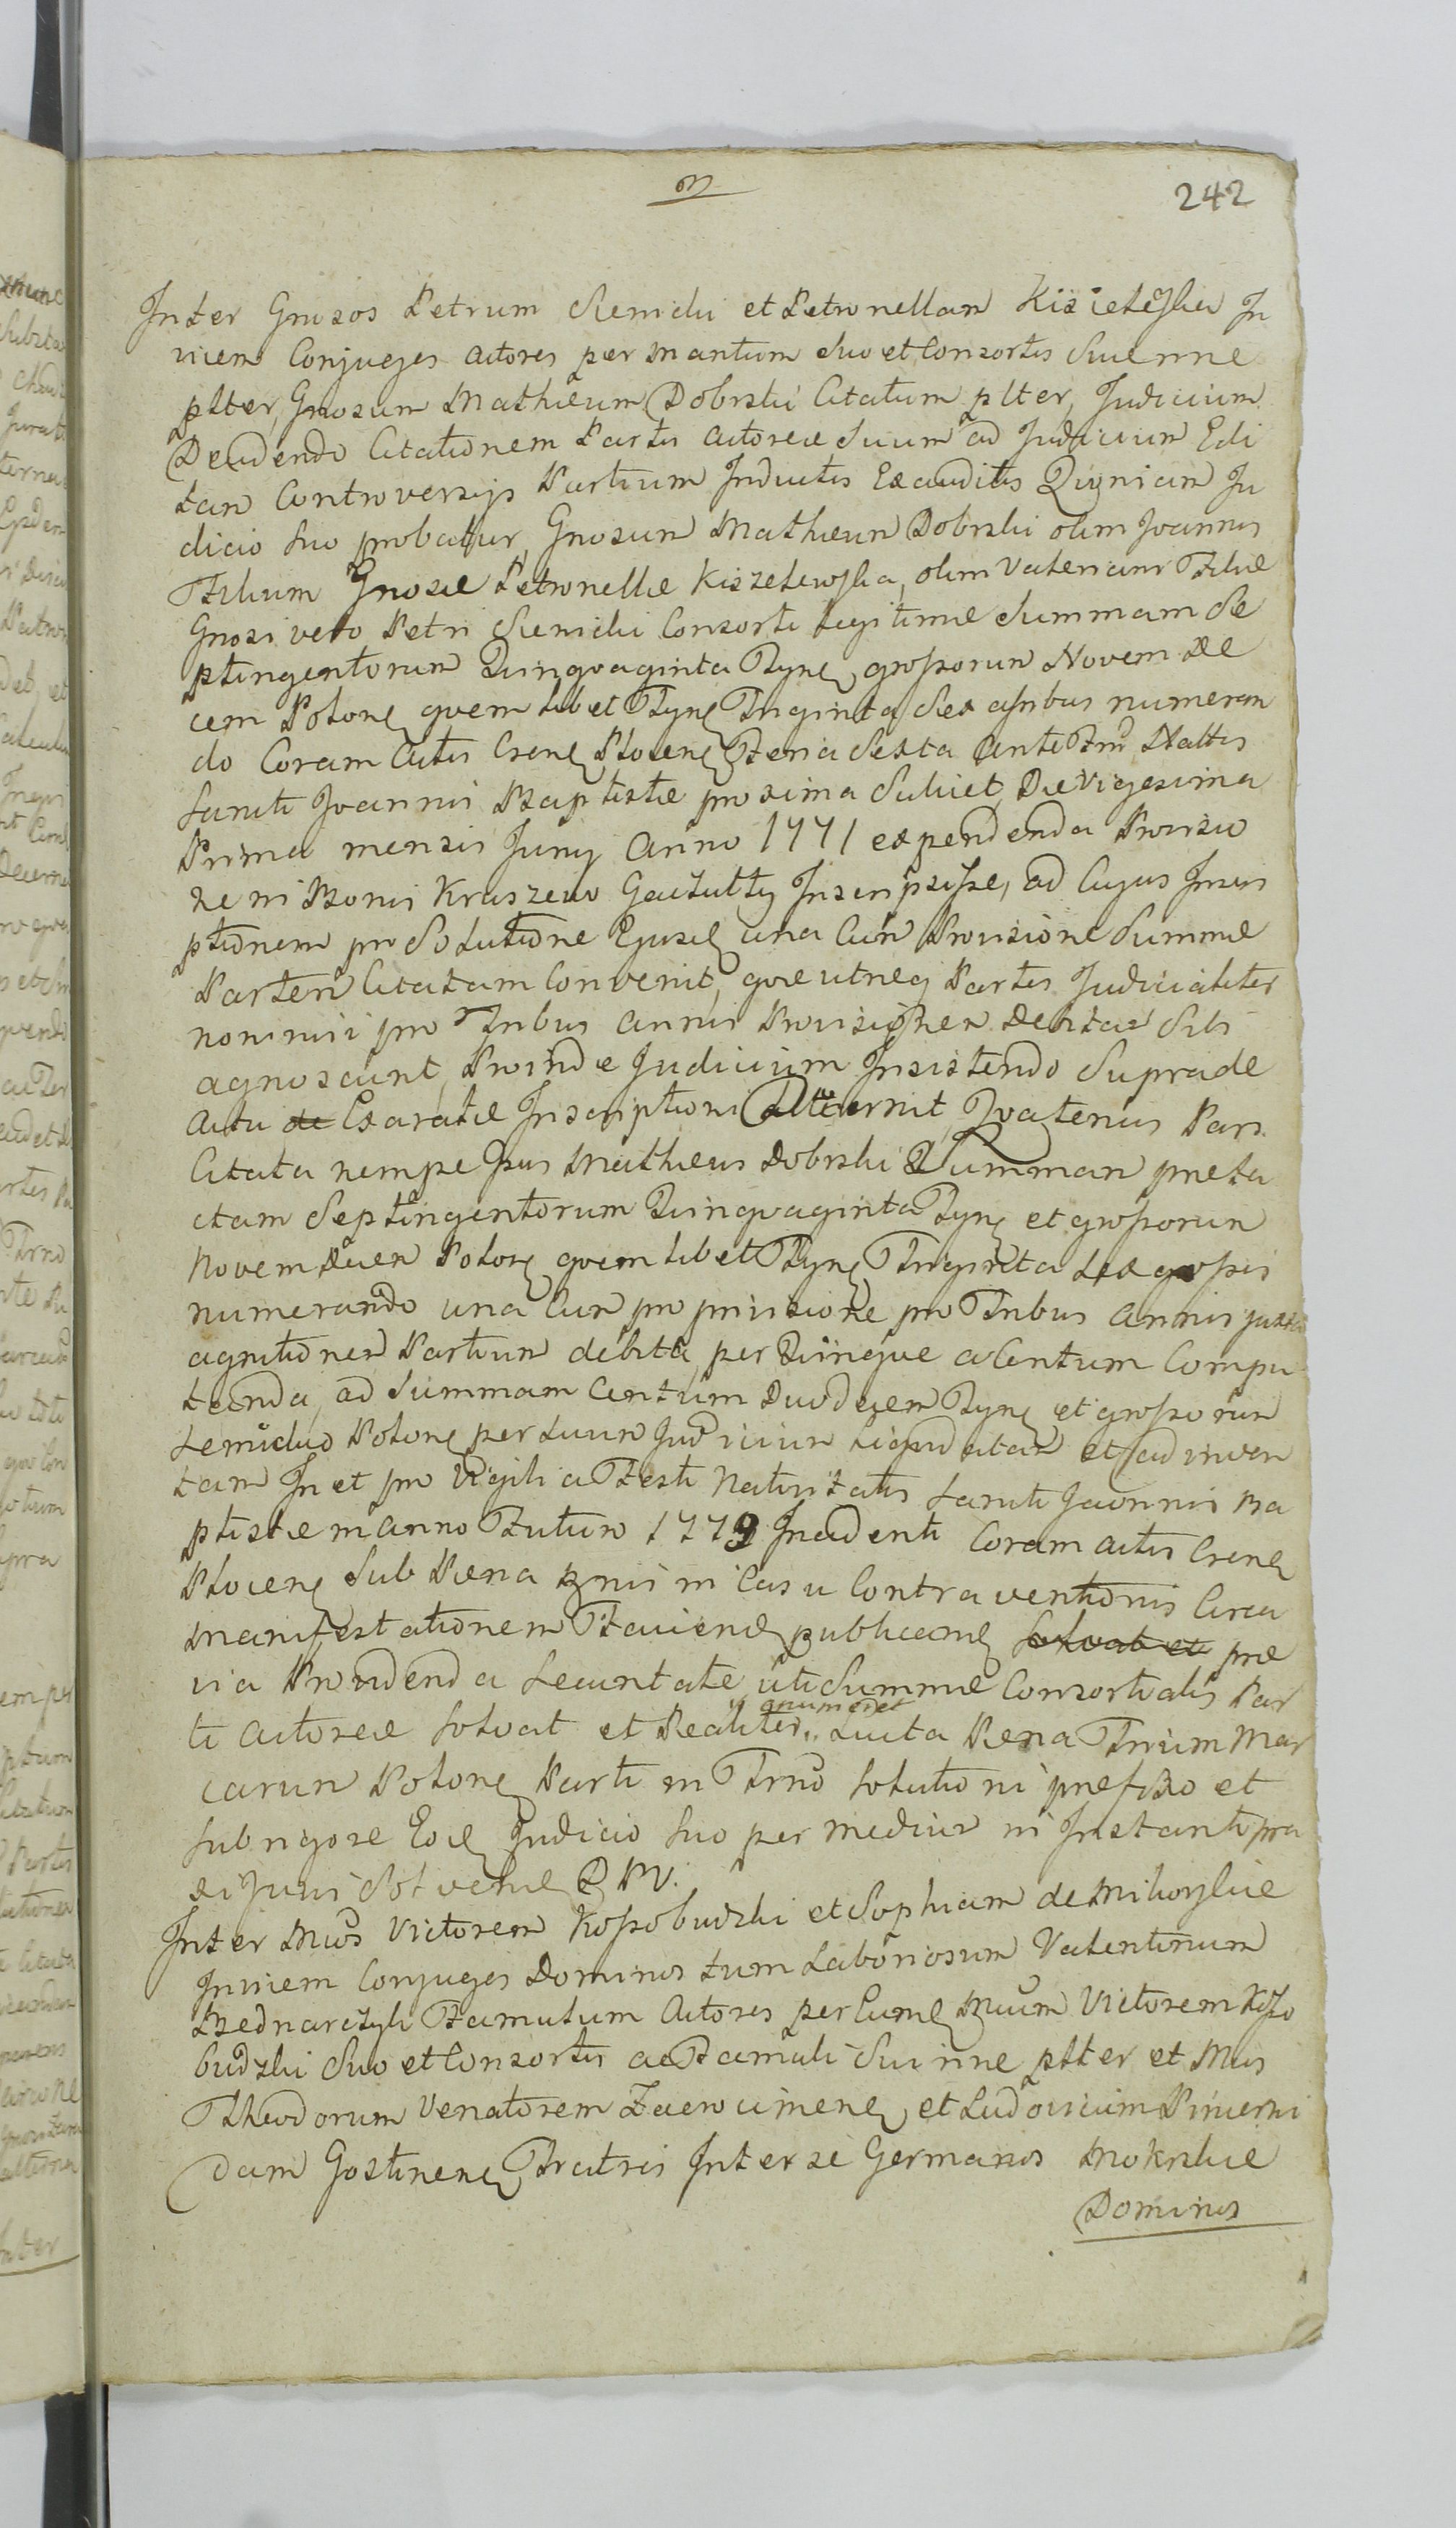 242
Inter Gnosos Petrum Sienicki et Petronellam Kisielewska In
vicem Conjuges Actores per Maritum Suo et Consortis Suae nne
plter, Gnosum Mathaeum Dobrski Citatum plter, Judicium
Decidendo Citationem Partis Actoreae Suum ad Judicium Edi
tam Controversijs Partium Inductis Exauditis Quoniam Ju
dicio Suo probatur, Gnosum Mathaeum Dobrski olim Joannis
Filium Gnosae Petronellae Kiszelewska, olim Valeriani Filiae
Gnosi vero Petri Sienicki Consorti Legitimae Summam Se
ptingentorum Quinquaginta Tynf, grossorum Novem De
cem Polon, quem libet Tynf Triginta Sex assibus numeran
do Coram Actis Csren Plocen Feria Sexta ante Fm Nattis
Sancti Joannis Baptistae proxima Scilicet Die Vigesima
Prima mensis Junij Anno 1771 expendenda Provisio
ne in Bonis Kraszewo Inscripsisse, ad Cujus Inscri
ptionem pro Solutione Ejusd una Cum Provisione Summae
Partem Citatam Convenit, quae utraeq Partes Judicialiter
nonnisi pro Tribus annis Provisionem Debitam Sibi
agnoscunt, Proinde Judicium Insistendo Supra de
Actu de Exaratae Inscriptioni Decernit, Quatenus Pars
Citata nempe Gsus Mathaeus Dobrski Summam praeta
ctam Septingentorum Quinquaginta Tynf et grossorum
Novemdecem Polon quem libet Tynf Triginta Sex grossis
numerando una Cum pro provisione pro Tribus annis juxta
agnitionem Partium debita, per Quinque a Centum Compu
tanda, ad Summam Centum Duodecem Tynf et grossorum
Semidud Polon per Suum Judicium Liquidatam et adinven
tam In et pro Vigilia Festi Nativitatis Sancti Joannis Ba
ptistae in Anno Futuro 1779 Incidenti Coram actis Csren
Plocen Sub Paena Bnis in Casu Contraventionis Circa
Manifestationem Faciend publicand Solvat et prae
via Providenda Securitate uti Summae Consortialis Par
ti Actoreae Solvat et Realiter "enumeret" Luita Paena Trium Mar
carum Polon Parti in Trno Solutioni praefixo et
Sub rigore Eod Judicio Suo per medium in Instanti pra
xi Juris Solvend D PV.
Inter Mcos Victorem Kossobudzki et Sophiam de Mikorskie
Invicem Conjuges Dominos tum Laboriosum Valentinum
Bednarczyk Famulum Actores per Eumd Mcum Victorem Kosso
budzki Suo et Consortis ac Famuli Sui nne plter et Mcos
Theodorum Venatorem Zacrocimen, et Ludovicum Pincerni
dam Gostinen Fratres Inter se Germanos Mokrskie
Dominos